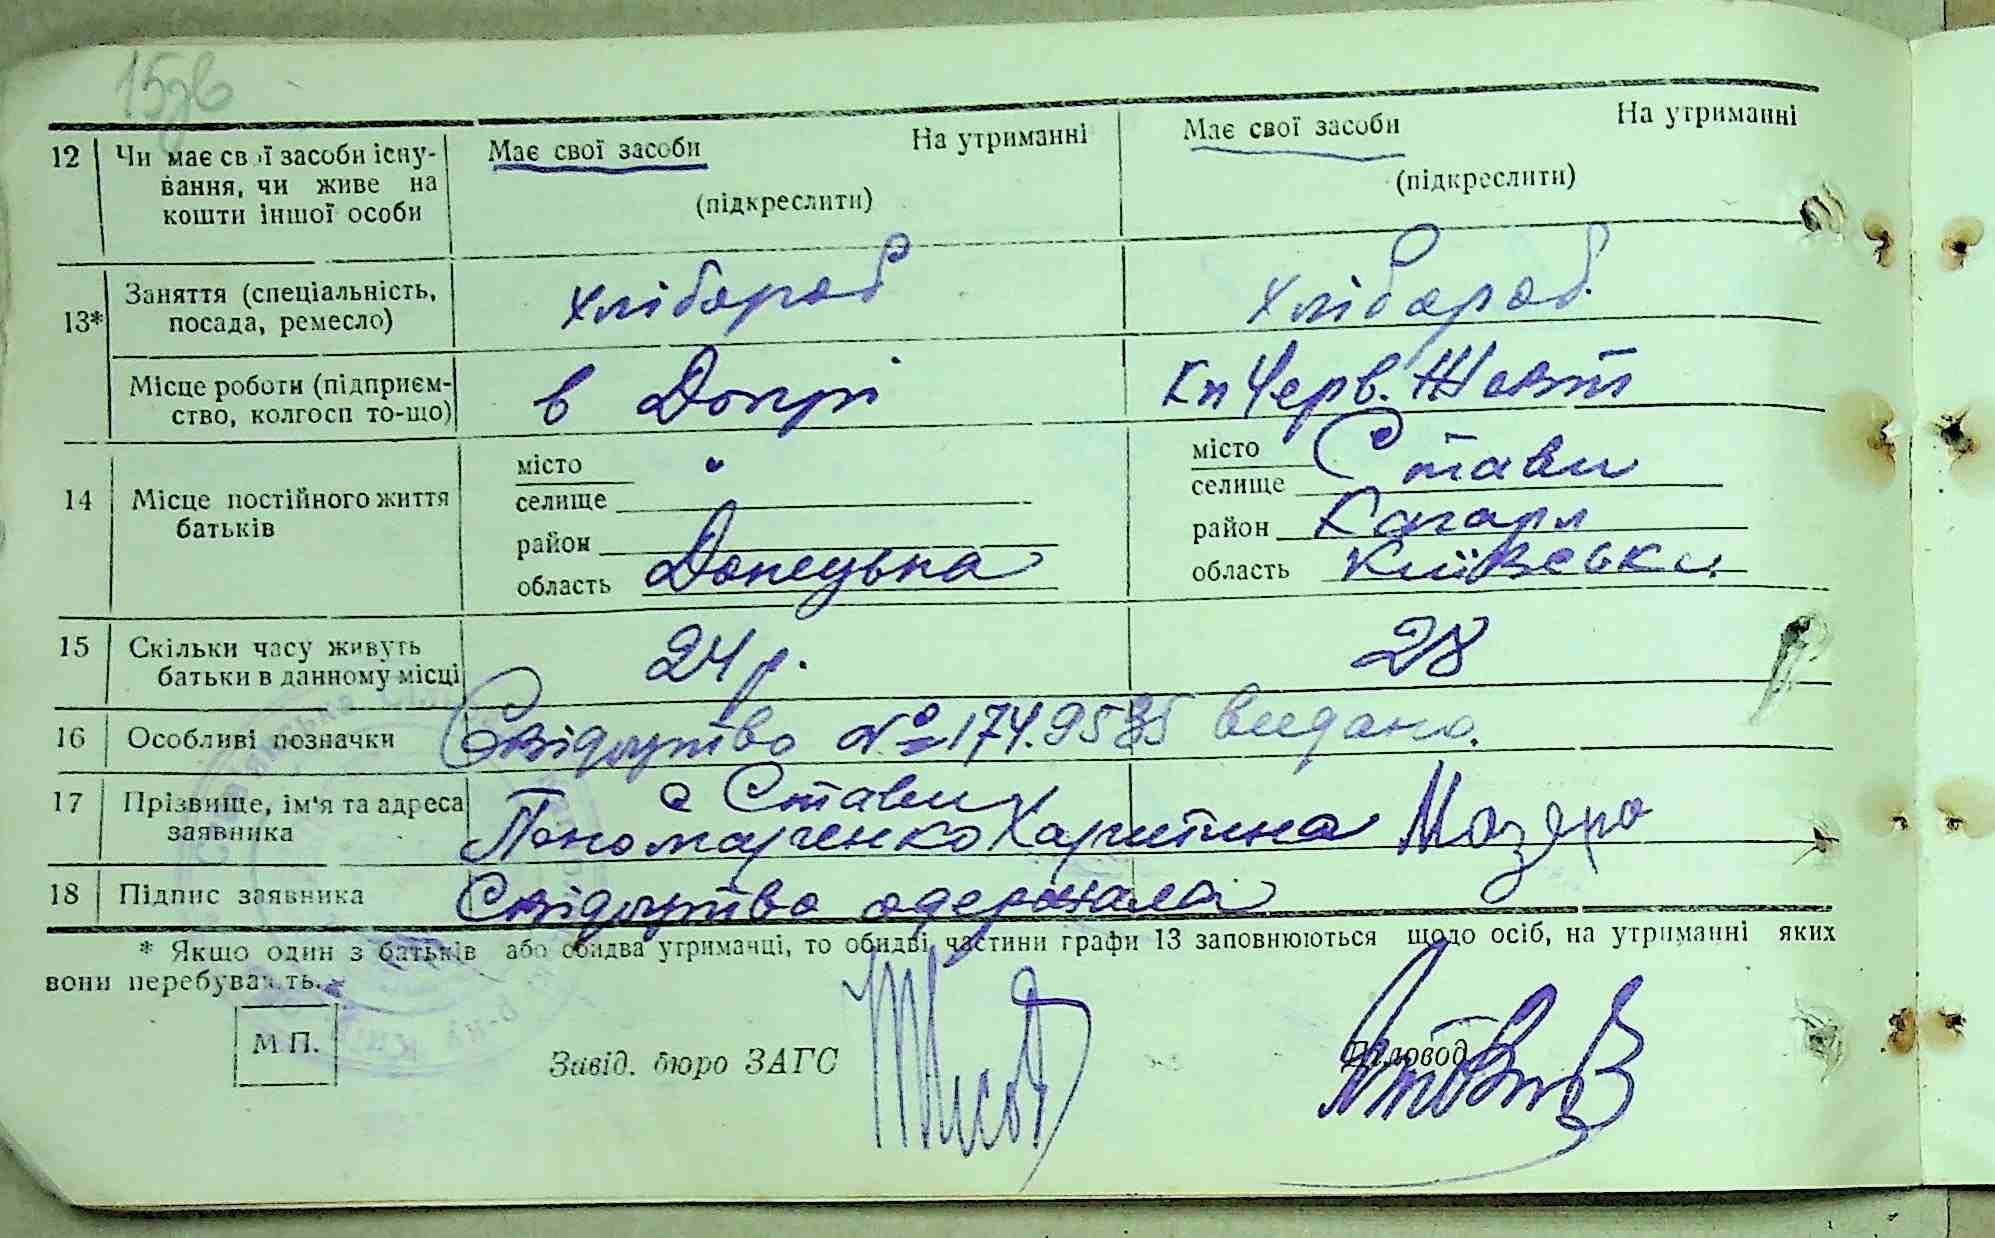 15зв
12 Чи має свої засоби існу- Має свої засоби На утриманні Має свої засоби На утриманні
вання, чи живе на
кошти іншої особи (підкреслити) (підкреслити)
13* Заняття (спеціальність, хлібороб хлібороб.
посада, ремесло)
Місце роботи (підприєм- в Допрі Кп Черв. Жовт
ство, колгосп то-що)
14 Місце постійного життя місто " місто Стави
батьків селище селище
район район Кагарл
область Донецька область Київська
15 Скільки часу живуть 24 р. 28
батьки в данному місці
16 Особливі позначки Свідоцтво № 174.9535 видано.
17 Прізвище, ім'я та адреса с Стави
заявника Пономаренко Харитина
18 Підпис заявника Свідоцтво одержала
* Якщо один з батьків або обидва утриманці, то обидві частини графи 13 заповнюються щодо осіб, на утриманні яких
вони перебувають.
М П. Завід. бюро ЗАГС Діловод